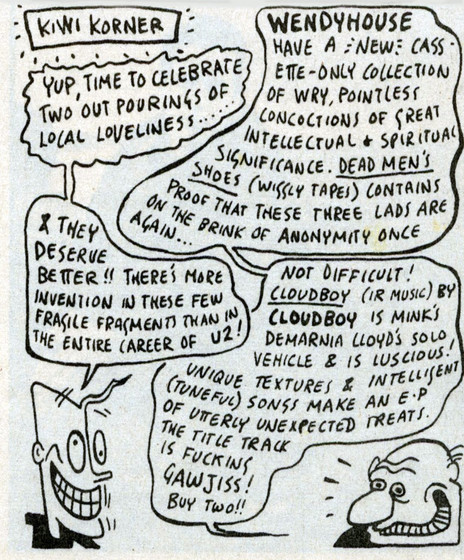 KIWI KORNER
YUP, TIME TO CELEBRATE
TWO OUT POURINGS OF
LOCAL LOVELINESS......
WENDYHOUSE
HAVE A NEW CASS-
ETTE-ONLY COLLECTION
OF WRY, POINTLESS
CONCOCTIONS OF GREAT
INTELLECTUAL & SPIRITUAL
SIGNIFICANCE. DEAD MEN'S
SHOES (WIGGLY TAPES) CONTAINS
PROOF THAT THESE THREE LADS ARE
ON THE BRINK OF ANONYMITY ONCE
AGAIN...
& THEY
DESERVE
BETTER!! THERE'S MORE
INVENTION IN THESE FEW
FRAGILE FRAGMENTS THAN IN
THE ENTIRE CAREER OF U2!
NOT DIFFICULT!
CLOUDBOY (IR MUSIC) BY
CLOUDBOY IS MINK'S
DEMARNIA LLOYD'S SOLO
VEHICLE & IS LUSCIOUS!
UNIQUE TEXTURES & INTELLIGENT
(TUNEFUL) SONGS MAKE AN E.P
OF UTTERLY UNEXPECTED TREATS.
THE TITLE TRACK
IS FUCKING
GAWJISS!
BUY TWO!!